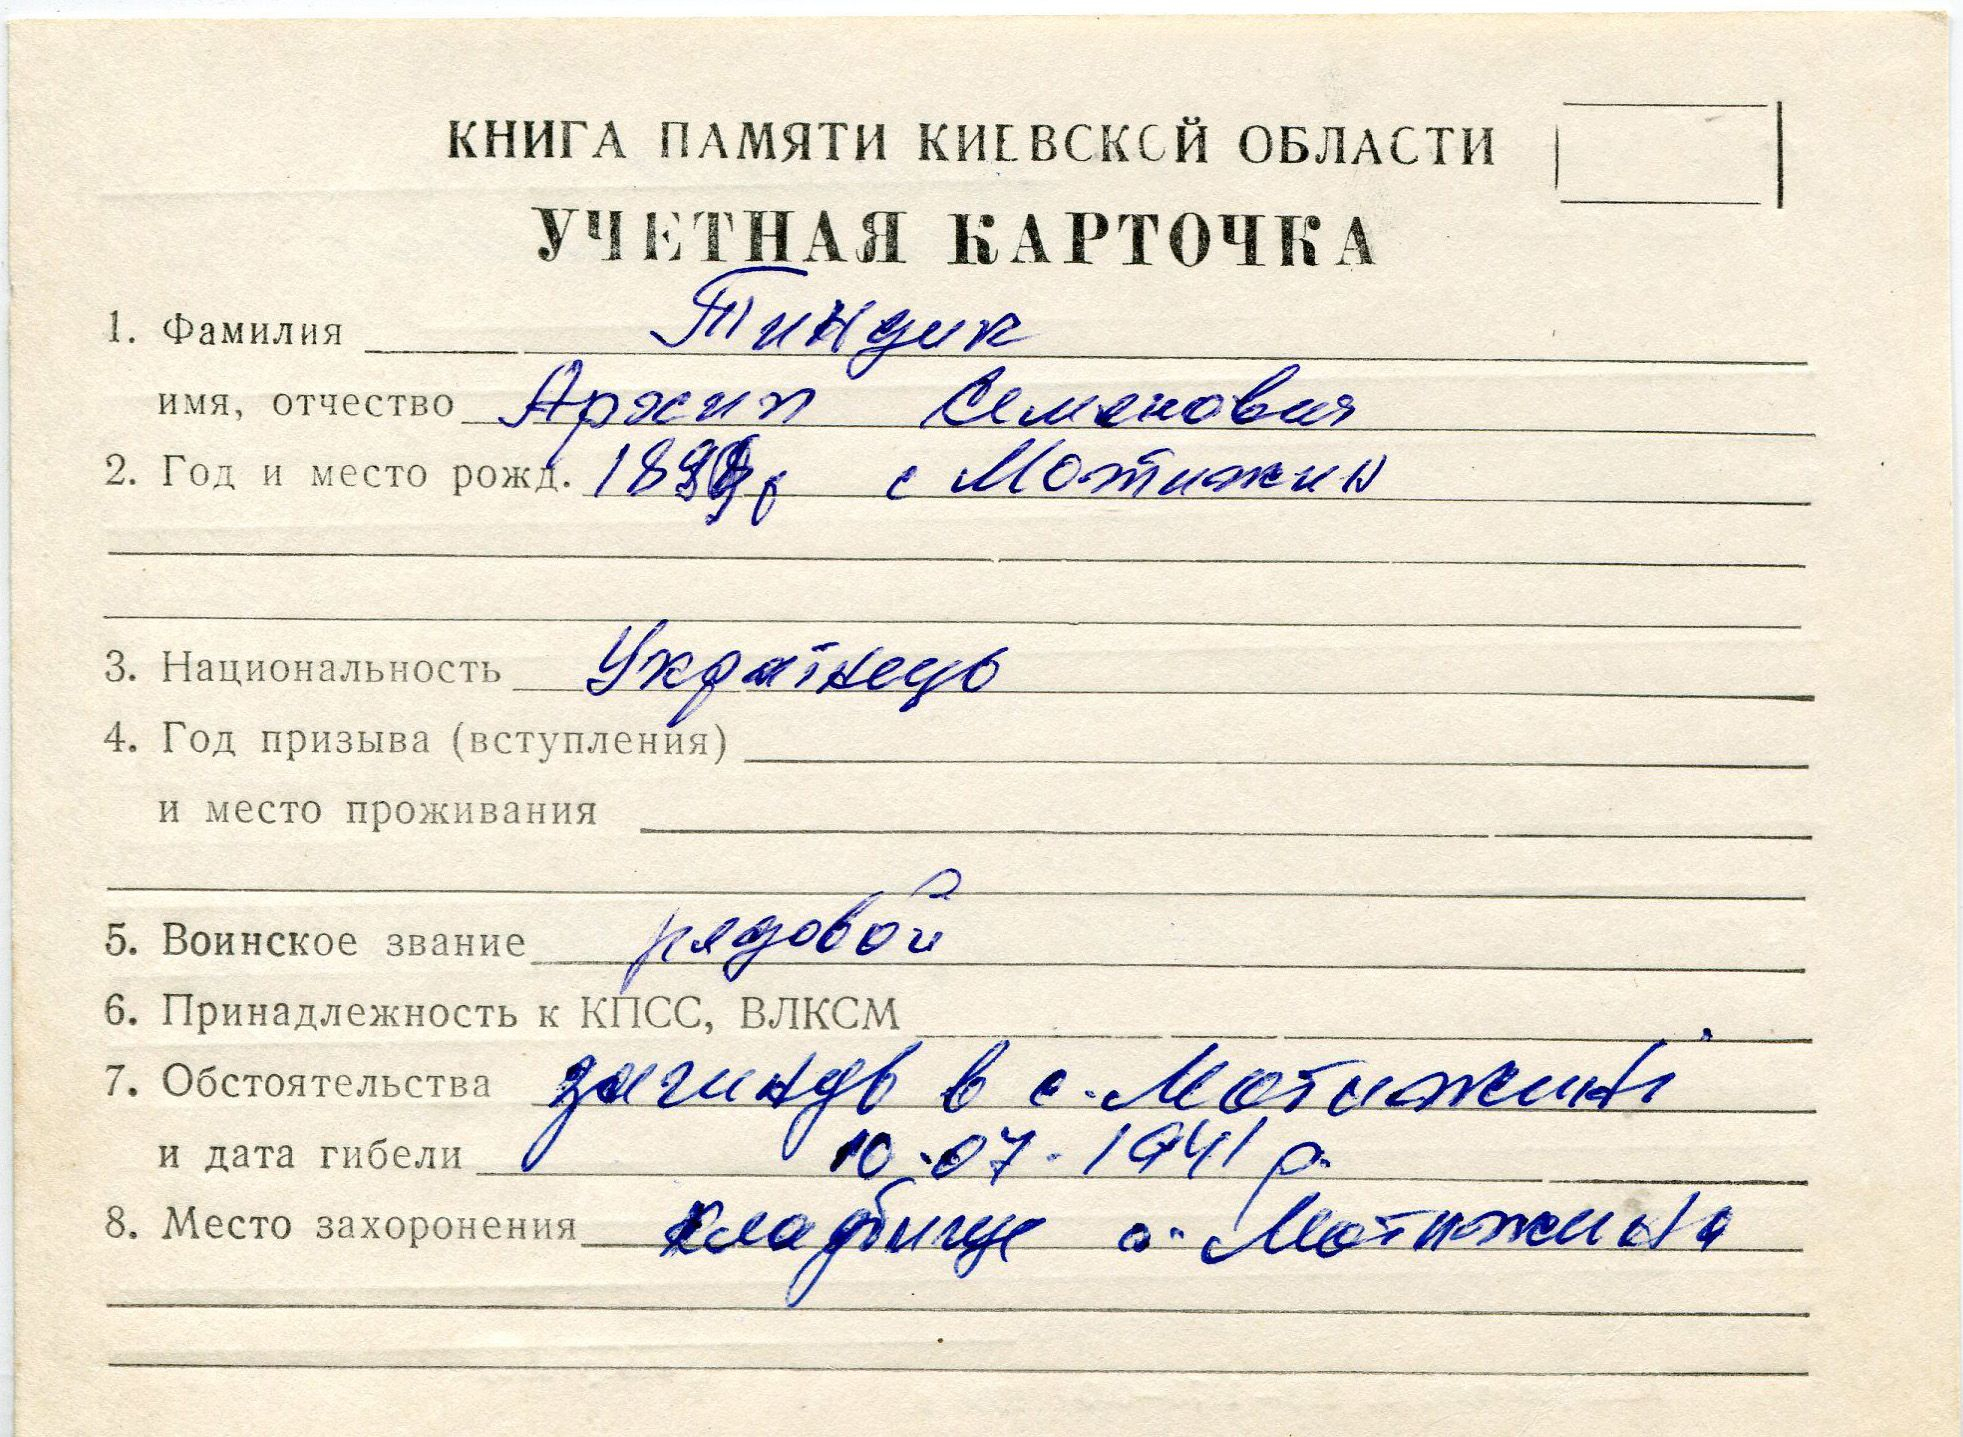 КНИГА ПАМЯТИ КИЕВСКОЙ ОБЛАСТИ
УЧЕТНАЯ КАРТОЧКА
1. Фамилия Тиндик
имя, отчество Архип Семенович
2. Год и место рожд. с Мотижин
3. Национальность Українець
4. Год призыва (вступления)
и место проживания
5. Воинское звание рядовой
6. Принадлежность к КПСС, ВЛКСМ
7. Обстоятельства загинув в с. Мотижині
и дата гибели 10.07.1941 р.
8. Место захоронения кладбище с. Мотижина